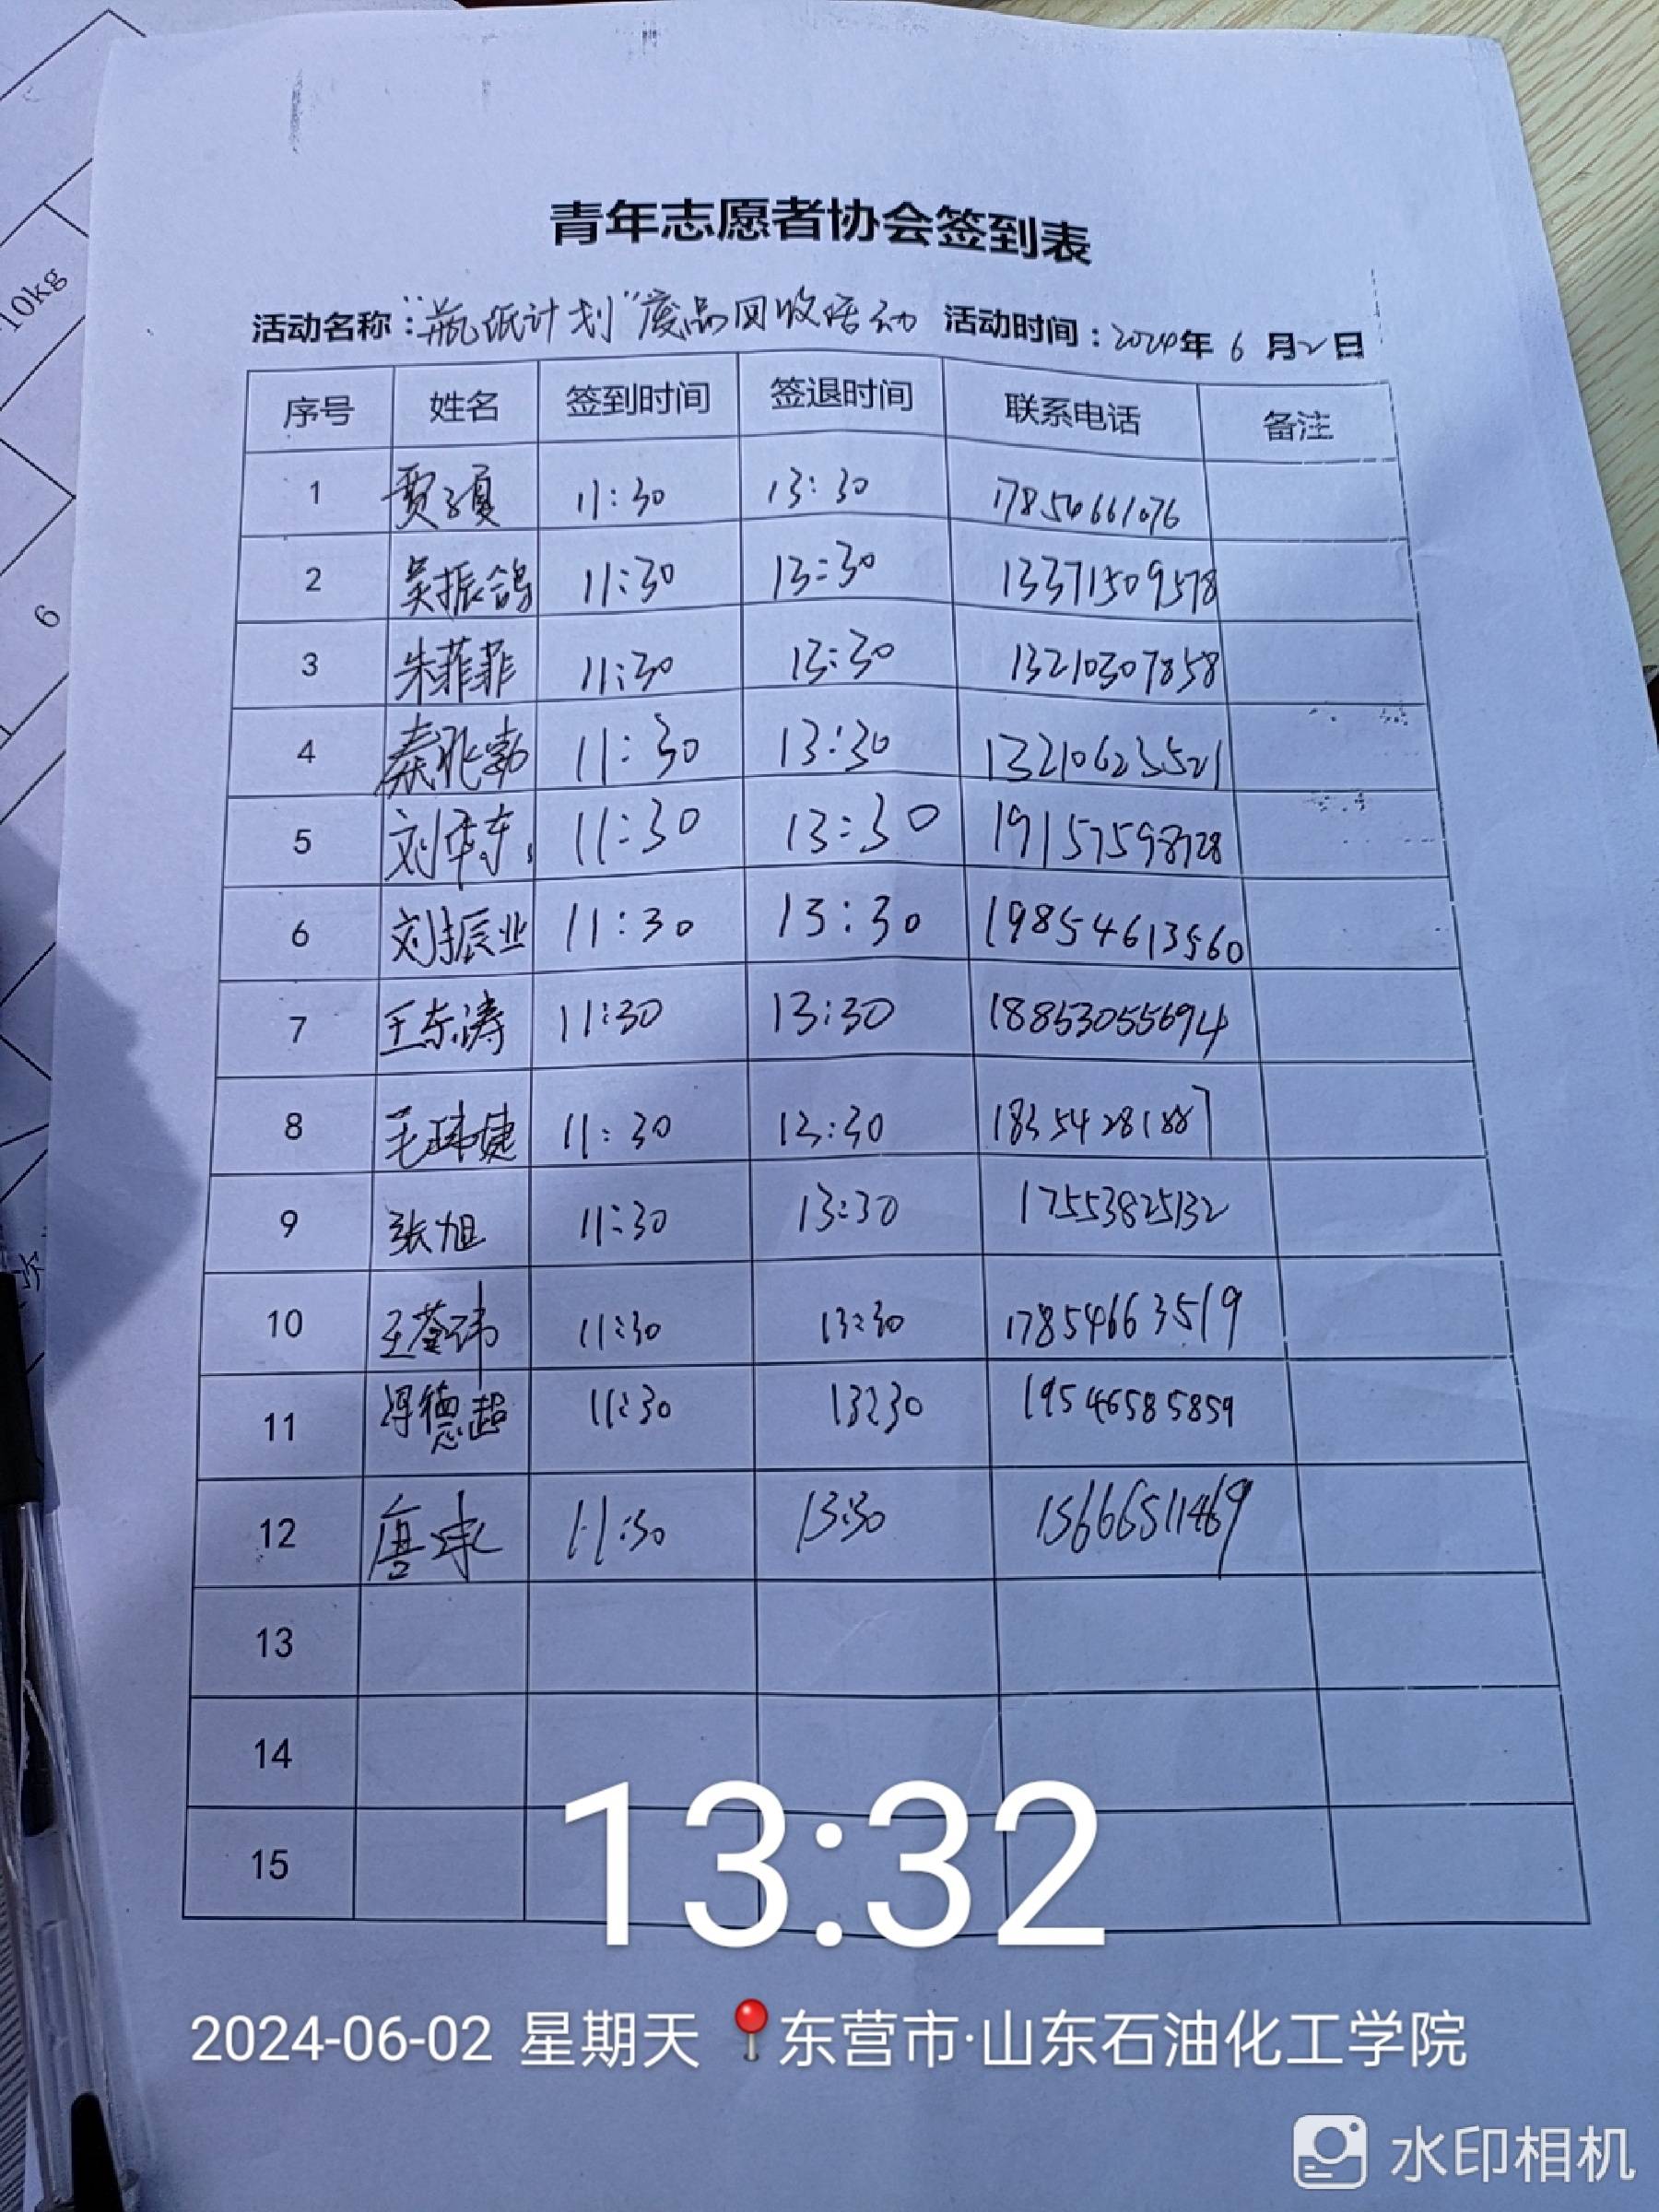 10kg
6
青年志愿者协会签到表
活动名称："瓶纸计划"废品回收活动 活动时间：2024年 6 月2日
序号 姓名 签到时间 签退时间 联系电话 备注
1 贾子夏 11:30 13:30 17854661076
2 吴振鸽 11:30 13:30 13371509578
3 朱菲菲 11:30 13:30 13210307858
4 秦兆勃 11:30 13:30 13210623521
5 刘华东 11:30 13:30 19157598728
6 刘振业 11:30 13:30 19854613560
7 王东涛 11:30 13:30 18853055694
8 毛 11:30 13:30 18354281887
9 张旭 11:30 13:30 17553825132
10 王荃玮 11:30 13:30 17854663519
11 冯德超 11:30 13:30 19546585859
12 唐 11:30 13:30 15666511469
13
14
15
13:32
2024-06-02 星期天 东营市·山东石油化工学院
水印相机